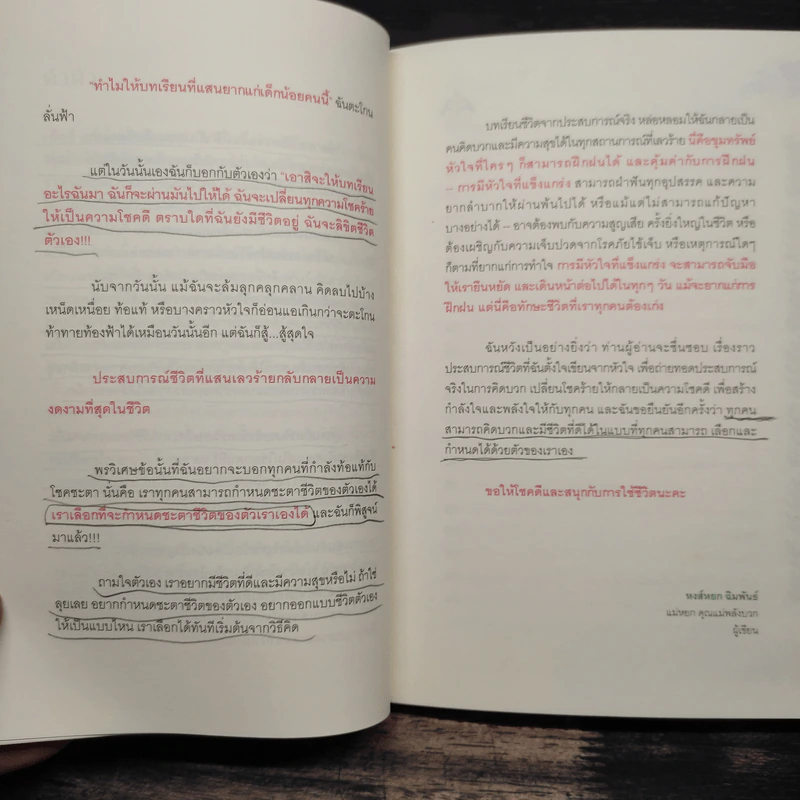 "ทำไมให้บทเรียนที่แสนยากแก่เด็กน้อยคนนี้" ฉันตะโกน
ลั่นฟ้า
แต่ในวันนั้นเองฉันก็บอกกับตัวเองว่า "เอาสิจะให้บทเรียน
อะไรฉันมา ฉันก็จะผ่านมันไปให้ได้ ฉันจะเปลี่ยนทุกความโชคร้าย
ให้เป็นความโชคดี ตราบใดที่ฉันยังมีชีวิตอยู่ ฉันจะลิขิตชีวิต
ตัวเอง!!!
นับจากวันนั้น แม้ฉันจะล้มลุกคลุกคลาน คิดลบไปบ้าง
เหน็ดเหนื่อย ท้อแท้ หรือบางคราวหัวใจก็อ่อนแอเกินกว่าจะตะโกน
ท้าทายท้องฟ้าได้เหมือนวันนั้นอีก แต่ฉันก็สู้...สู้สุดใจ
ประสบการณ์ชีวิตที่แสนเลวร้ายกลับกลายเป็นความ
งดงามที่สุดในชีวิต
พรวิเศษข้อนั้นที่ฉันอยากจะบอกทุกคนที่กำลังท้อแท้กับ
โชคชะตา นั่นคือ เราทุกคนสามารถกำหนดชะตาชีวิตของตัวเองได้
เราเลือกที่จะกำหนดชะตาชีวิตของตัวเราเองได้ และฉันก็พิสูจน์
มาแล้ว!!!
ถามใจตัวเอง เราอยากมีชีวิตที่ดีและมีความสุขหรือไม่ ถ้าใช่
ลุยเลย อยากกำหนดชะตาชีวิตของตัวเอง อยากออกแบบชีวิตตัวเอง
ให้เป็นแบบไหน เราเลือกได้ทันทีเริ่มต้นจากวิธีคิด
บทเรียนชีวิตจากประสบการณ์จริง หล่อหลอมให้ฉันกลายเป็น
คนคิดบวกและมีความสุขได้ในทุกสถานการณ์ที่เลวร้าย นี่คือขุมทรัพย์
หัวใจที่ใครๆ ก็สามารถฝึกฝนได้ และคุ้มค่ากับการฝึกฝน
-- การมีหัวใจที่แข็งแกร่ง สามารถฝ่าฟันทุกอุปสรรค และความ
ยากลำบากให้ผ่านพ้นไปได้ หรือแม้แต่ไม่สามารถแก้ปัญหา
บางอย่างได้ -- อาจต้องพบกับความสูญเสีย ครั้งยิ่งใหญ่ในชีวิต หรือ
ต้องเผชิญกับความเจ็บปวดจากโรคภัยไข้เจ็บ หรือเหตุการณ์ใดๆ
ก็ตามที่ยากแก่การทำใจ การมีหัวใจที่แข็งแกร่ง จะสามารถจับมือ
ให้เรายืนหยัด และเดินหน้าต่อไปได้ในทุกๆ วัน แม้จะยากแก่การ
ฝึกฝน แต่นี่คือทักษะชีวิตที่เราทุกคนต้องเก่ง
ฉันหวังเป็นอย่างยิ่งว่า ท่านผู้อ่านจะชื่นชอบ เรื่องราว
ประสบการณ์ชีวิตที่ฉันตั้งใจเขียนจากหัวใจ เพื่อถ่ายทอดประสบการณ์
จริงในการคิดบวก เปลี่ยนโชคร้ายให้กลายเป็นความโชคดี เพื่อสร้าง
กำลังใจและพลังใจให้กับทุกคน และฉันขอยืนยันอีกครั้งว่า ทุกคน
สามารถคิดบวกและมีชีวิตที่ดีได้ในแบบที่ทุกคนสามารถ เลือกและ
กำหนดได้ด้วยตัวของเราเอง
ขอให้โชคดีและสนุกกับการใช้ชีวิตนะคะ
หงส์หยก ฉิมพันธ์
แม่หยก คุณแม่พลังบวก
ผู้เขียน